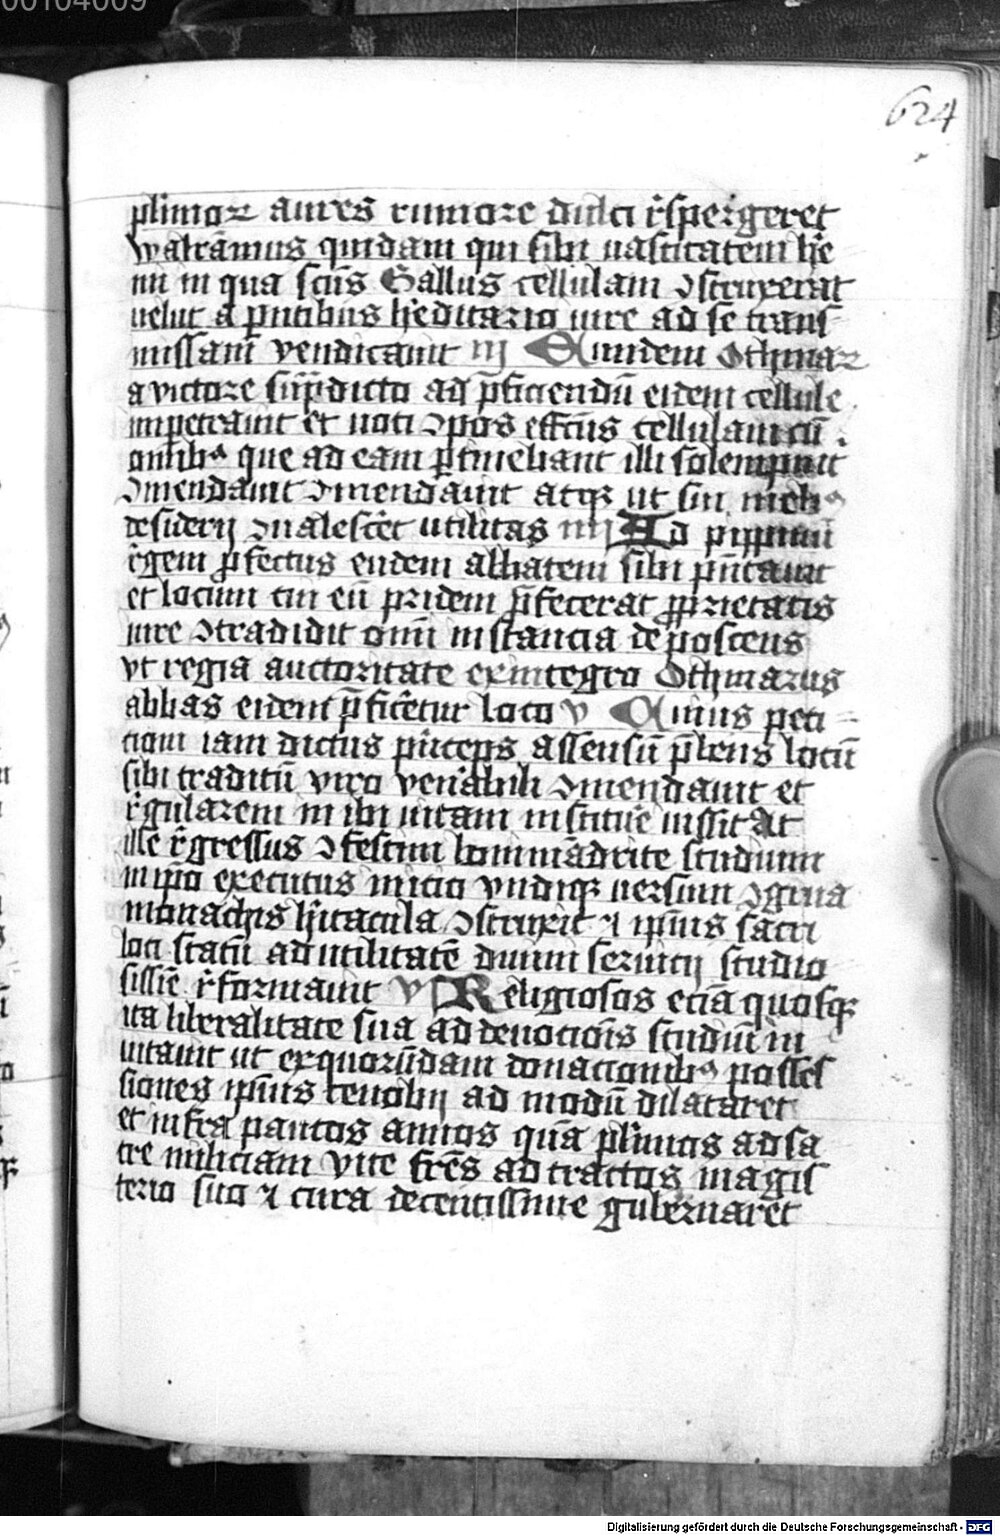 00104009
624
pl'imoꝝ aures rumore dulci r̄spergeret
waltrāmus quidam qui sibi uastitatem h̄e
mi in qua sc̄us Gallus cellulam ꝯstruxerat
uelut a pn̄tibus h̄editario iure ad se trans
missam vendicauit iij Quidem Othmaꝝ
a victore sup̄dicto ad p̄ficiendū eidem cellule
impetrauit et uoti ꝯpos effc̄us cellulam cū
omībꝰ que ad eam ꝑtinebant illi solempnit̄
ꝯmendauit ꝯmendauit atqꝫ ut sui melꝰ
desiderij ꝯualesc̄et utilitas iiij Ad pippinū
r̄gem ꝓfectus eudem abbatem sibi pn̄tauit
et locum cui eū pridem p̄fecerat ꝓprietatis
iure ꝯtradidit omī instancia deposcens
vt regia auctoritate ex integro Othmarus
abbas eidem p̄fic̄etur loco v Cuius peti
tioni iam dictus pn̄ceps assensū p̄bens locū
sibi traditū viro ven̄abili ꝯmendauit et
r̄gularem in ibi uitam instituē iussit At
ille r̄gressus ꝯfestim bonum ādrite studium
in ip̄o executus inicio vndiqꝫ uersum ꝯgrua
monachis h̄itacula ꝯstruxit ⁊ ip̄ius sacri
loci statū ad utilitatē diuini seruicij studio
sissīe r̄formauit vj Religiosos eciā quosqꝫ
ita liberalitate sua ad deuocōis studiū in
uitauit ut ex quorūdam donacionibꝰ posses
siones ip̄ius cenobij ad modū dilataret
et infra paucos annos quā pl'imos ad sa
cre miliciam vite fr̄es ad tractos magis
terio suo ⁊ cura decentissime gubernaret
Digitalisierung gefördert durch die Deutsche Forschungsgemeinschaft - DFG